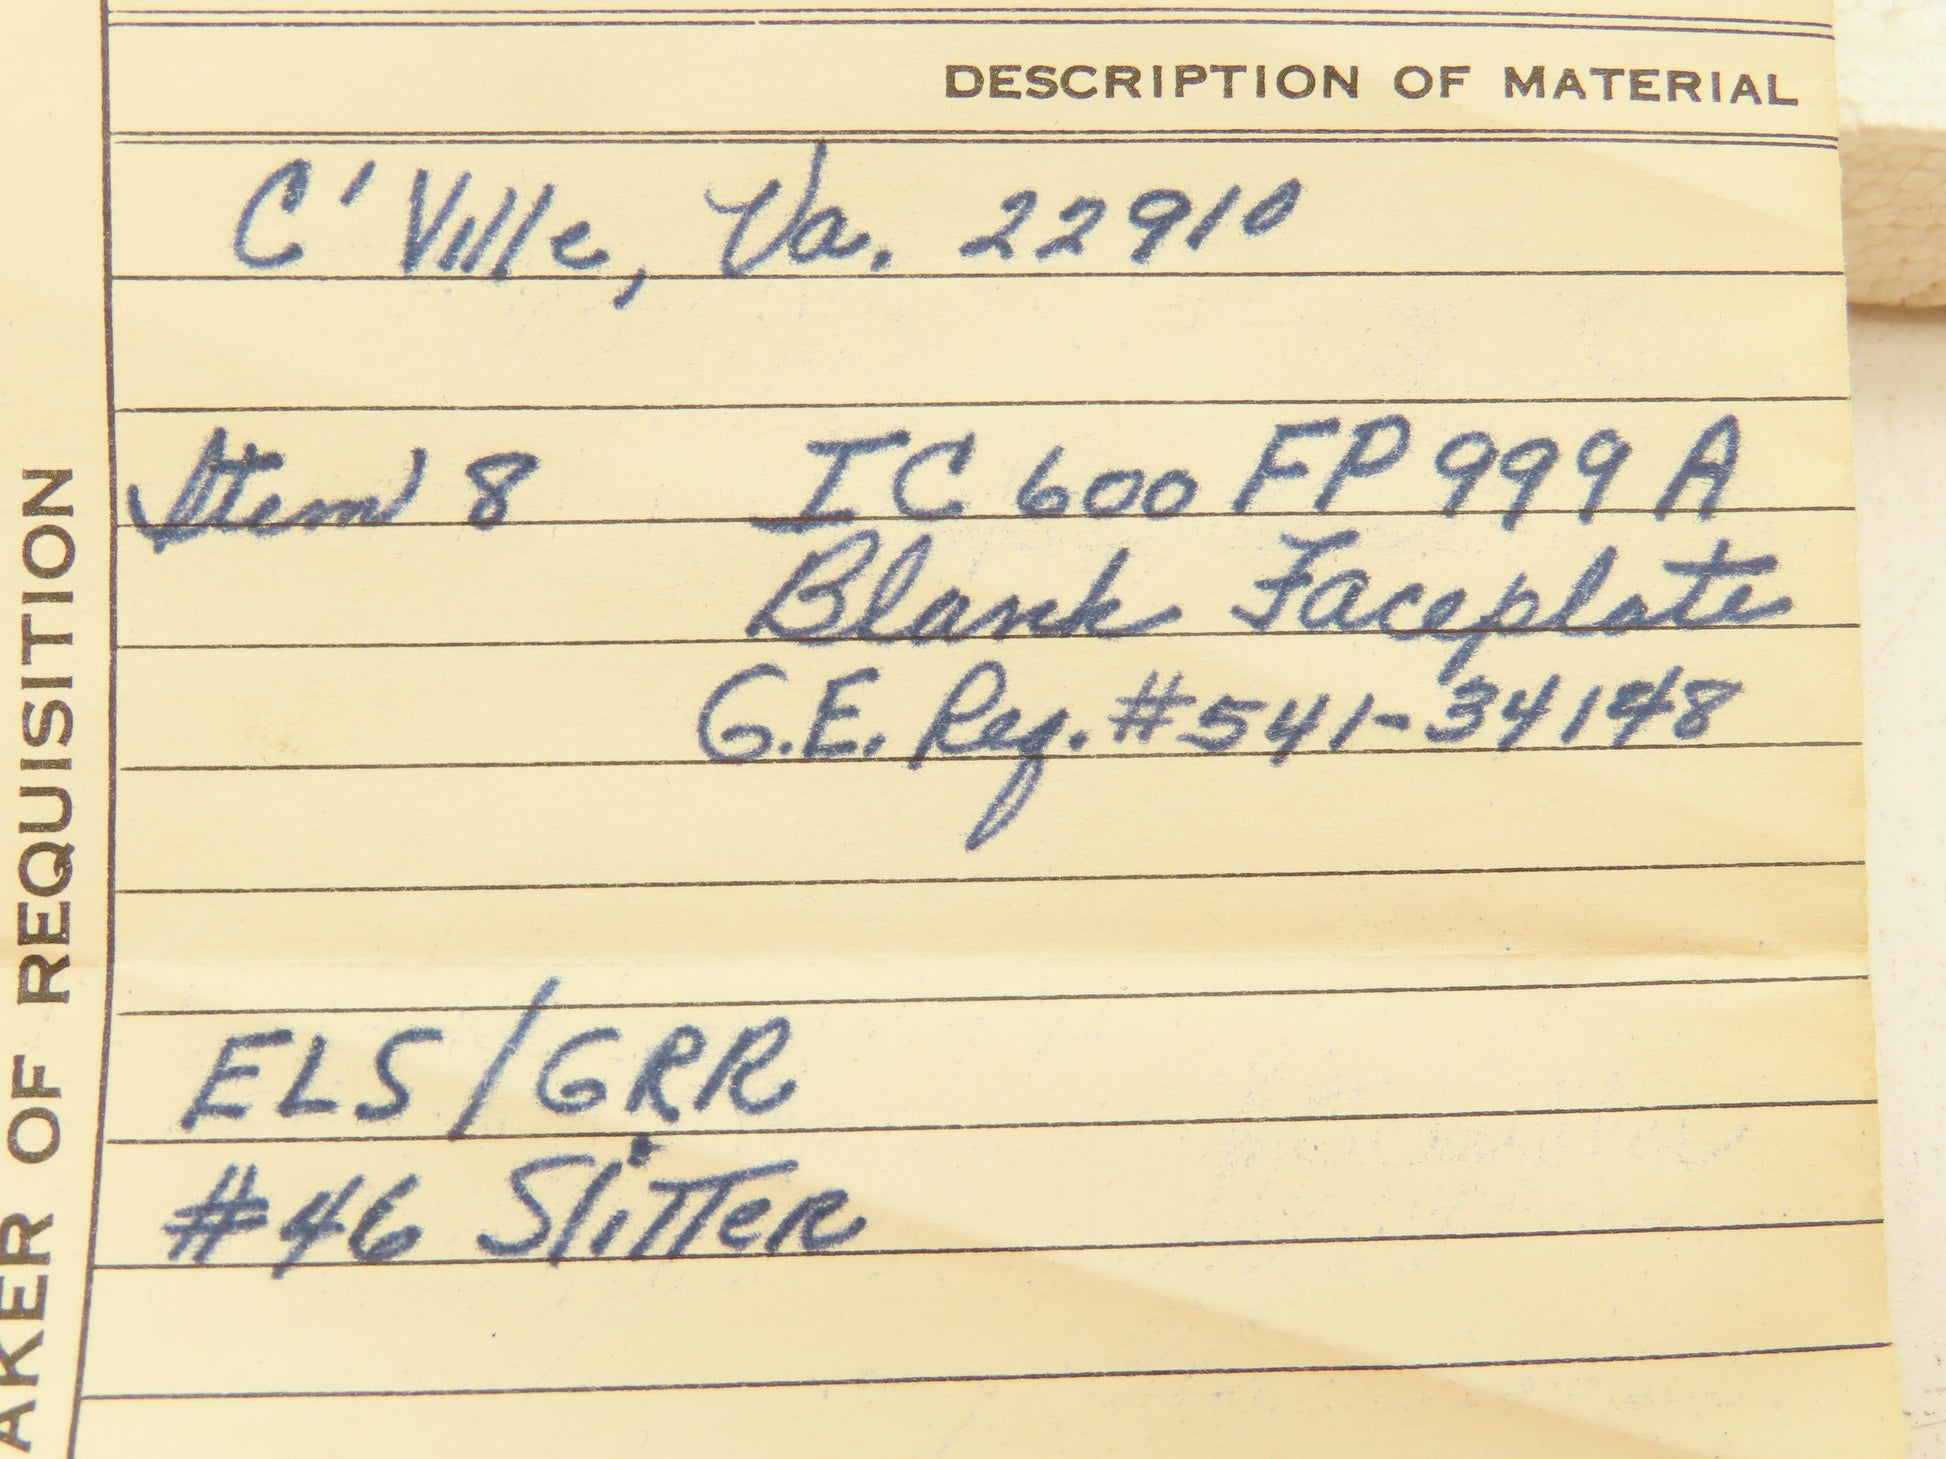 DESCRIPTION OF MATERIAL
C'Ville, Va. 22910
Item 8 IC600FP999A
Blank Faceplate
G.E. Req. #541-34148
ELS/GRR
#46 Slitter
AKER OF REQUISITION